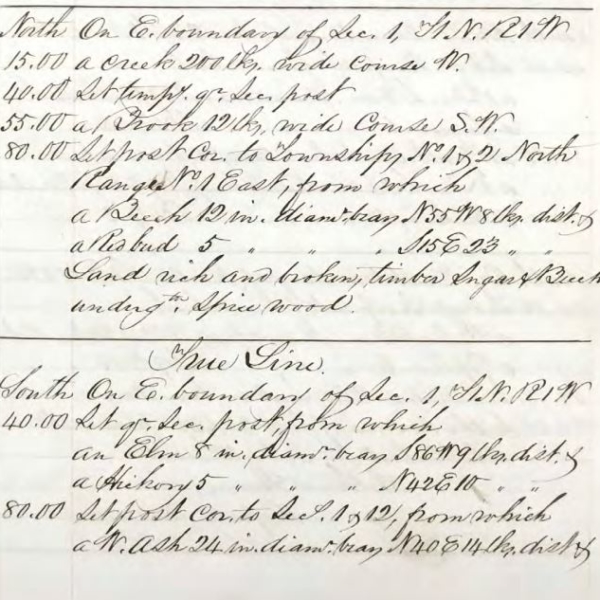 North On E. boundary of Sec. 1, T1.N. R1W
15.00 a Creek 200 lks. wide Course W.
40.00 Set tempy. qr. Sec. post
55.00 a Brook 12 lks. wide Course S.W.
80.00 Set post Cor. to Townships No. 1 & 2 North
Ranges No. 1 East, from which
a Beech 12 in. diamr. bears N55W 8 lks. dist. &
a Redbud 5 " " " S15E 23 " "
Land rich and broken, timber Sugar & Beech
undrgth. Spice wood.
True Line.
South On E. boundary of Sec. 1, T1.N. R1W
40.00 Set qr. Sec. post, from which
an Elm 8 in. diamr. bears S86W 9 lks. dist. &
a Hickory 5 " " " N42E 10 " "
80.00 Set post Cor. to Secs. 1 & 12, from which
a W. Ash 24 in. diamr. bears N40E 14 lks. dist &